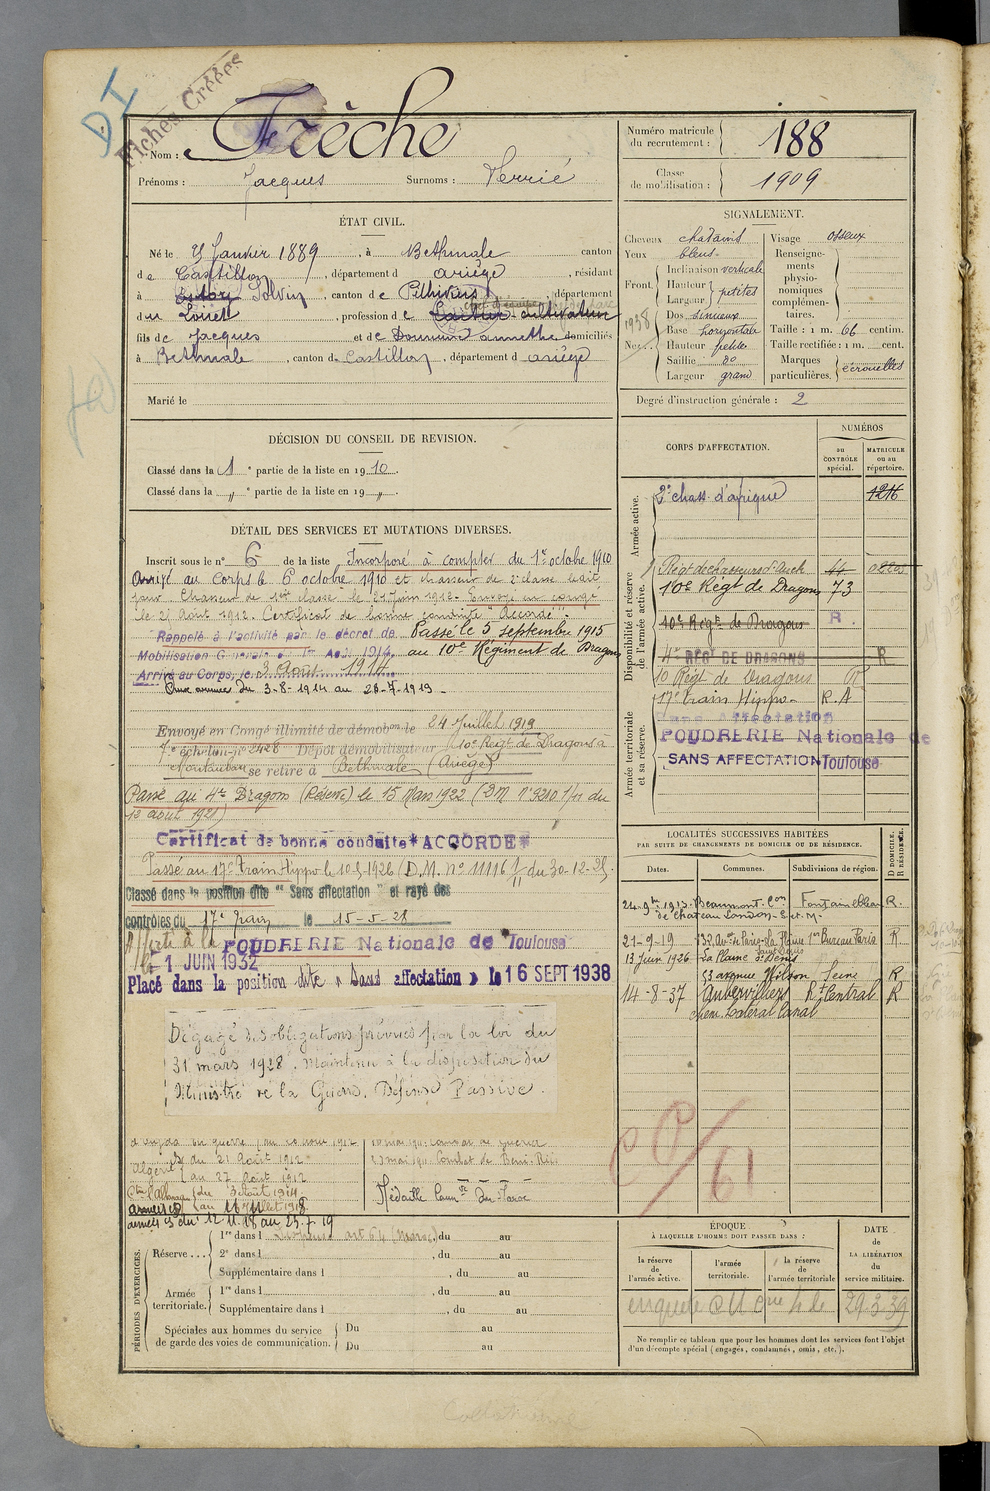 DI
Fiches Créées
Nom : Frèche
Prénoms : Jacques Surnoms : Verrié
Numéro matricule du recrutement : 188
Classe de mobilisation : 1909
ÉTAT CIVIL.
Né le 9 Janvier 1889, à Bethmale canton
de Castillon, département d ariège, résidant
à Solvin, canton de Pithiviers, département
du Loiret, profession de cultivateur
fils de Jacques et de Domenc annette domiciliés
à Bethmale, canton de Castillon, département d ariège
Marié le
SIGNALEMENT.
Cheveux chatains
Yeux bleus
Front Inclinaison verticale
Hauteur petites
Largeur
Nez Dos sinueux
Base horizontale
Hauteur petite
Saillie
Largeur grand
1938
Visage osseux
Renseignements physionomiques complémentaires.
Taille : 1 m. 66 centim.
Taille rectifiée : 1 m. cent.
Marques particulières. écrouelles
Degré d'instruction générale : 2
DÉCISION DU CONSEIL DE REVISION.
Classé dans la 1 e partie de la liste en 1910.
Classé dans la " e partie de la liste en 19 ".
DÉTAIL DES SERVICES ET MUTATIONS DIVERSES.
Inscrit sous le n° 6 de la liste Incorporé à compter du 1er octobre 1910
Arrivé au corps le 6 octobre 1910 et chasseur de 2e classe
Chasseur de 1ere classe le 21 Juin 1912. Envoyé en congé
le 27 Août 1912. Certificat de bonne conduite "Accordé"
Rappelé à l'activité par le décret de Passé le 5 septembre 1915
Mobilisation Générale du 1er Août 1914 au 10e Régiment de Dragons
Arrivé au Corps, le 3 Août 1914
Aux armées du 3-8-1914 au 23-7-1919.
Envoyé en Congé illimité de démobon le 24 Juillet 1919
7e échelon n° 2428 Dépôt démobilisateur 10e Regt de Dragons à
Montauban se retire à Bethmale (Ariège)
Passé au 4e Dragons (Réserve) le 15 Mars 1922 (DM n° 9210 1/11 du
12 août 1921)
Certificat de bonne conduite *ACCORDE*
Passé au 17e Train Hippo le 10-5-1926 (D.M. n° 11116 1/11 du 30-12-25.
Classé dans la position dite "Sans affectation" et rayé des
contrôles du 17e train le 15-5-28
Affecté à la POUDRERIE Nationale de Toulouse
le 1 JUIN 1932
Placé dans la position dite « Sans affectation » le 16 SEPT 1938
Dégagé des obligations prévues par la loi du
31 mars 1928. Maintenu à la disposition du
Ministre de la Guerre. Défense Passive.
Algérie
au 21 Août 1912
au 27 Août 1912
Cne c/Allemagne du 3 Août 1914
armées du 12.11.18 au 23.7.19
Combat de Beni-
Médaille Comve du Maroc
CORPS D'AFFECTATION.
NUMÉROS
au CONTRÔLE spécial.
MATRICULE ou au répertoire.
Armée active.
2e chass. d'afrique 1216
Disponibilité et réserve de l'armée active.
Régt de chasseurs d'Auch 44
10e Régt de Dragons 73
10e Régt de Dragons R
4e REGT DE DRAGONS R
10 Régt de Dragons
Armée territoriale et sa réserve.
17e train Hippo - R.A
Sans Affectation
POUDRERIE Nationale de
SANS AFFECTATION Toulouse
LOCALITÉS SUCCESSIVES HABITÉES
PAR SUITE DE CHANGEMENTS DE DOMICILE OU DE RÉSIDENCE.
Dates. Communes. Subdivisions de région. D DOMICILE. R RÉSIDENCE.
24-9bre 1913 Beaumont Con Fontainebleau R.
de Chateau Landon S. et M.
21-9-19 132 Avue de Paris - La Plaine St Denis 1er Bureau Paris R
13 Juin 1926 La Plaine St Denis
53 avenue Wilson Seine R
14-8-37 Aubervilliers Rt Central R
chem. Latéral Canal
PÉRIODES D'EXERCICES.
Réserve... 1re dans l Dispensé art 64 (Maroc), du au
2e dans l , du au
Supplémentaire dans l , du au
Armée territoriale. 1re dans l , du au
Supplémentaire dans l , du au
Spéciales aux hommes du service de garde des voies de communication. Du au
Du au
ÉPOQUE
À LAQUELLE L'HOMME DOIT PASSER DANS :
la réserve de l'armée active.
l'armée territoriale.
la réserve de l'armée territoriale
DATE de LA LIBÉRATION du service militaire.
29.3.39
Ne remplir ce tableau que pour les hommes dont les services font l'objet
d'un décompte spécial (engagés, condamnés, omis, etc.).